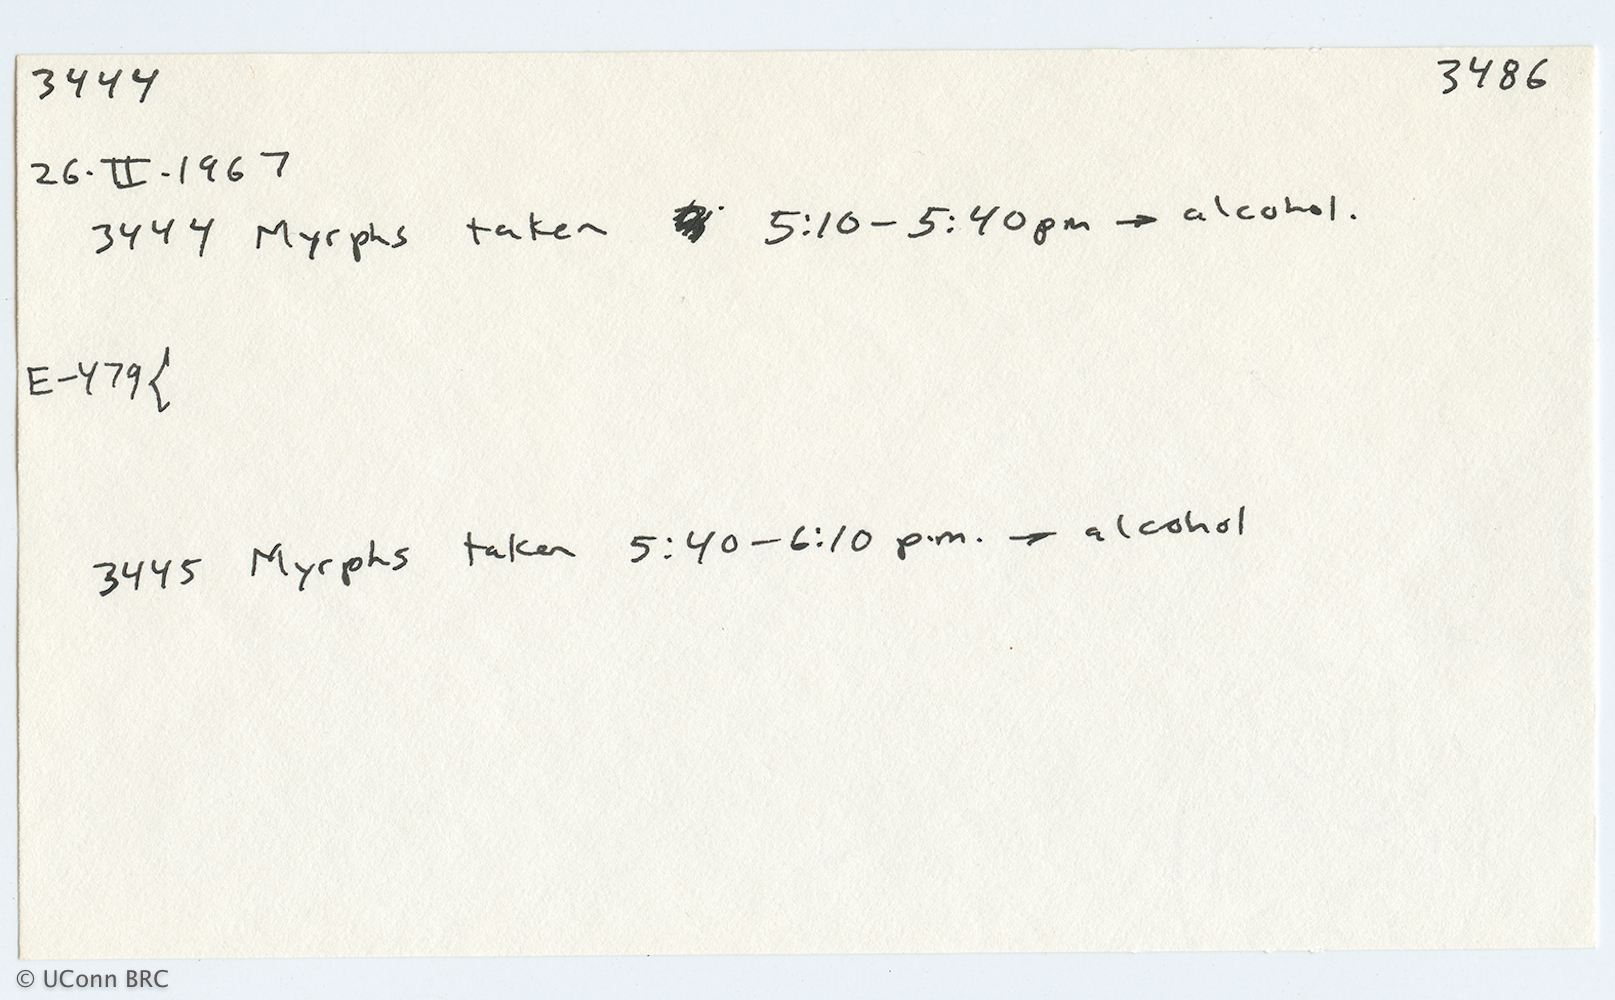 3444 3486
26·II·1967
3444 Myrphs taken 5:10–5:40pm → alcohol.
E-479{
3445 Myrphs taken 5:40–6:10 p.m. → alcohol
© UConn BRC